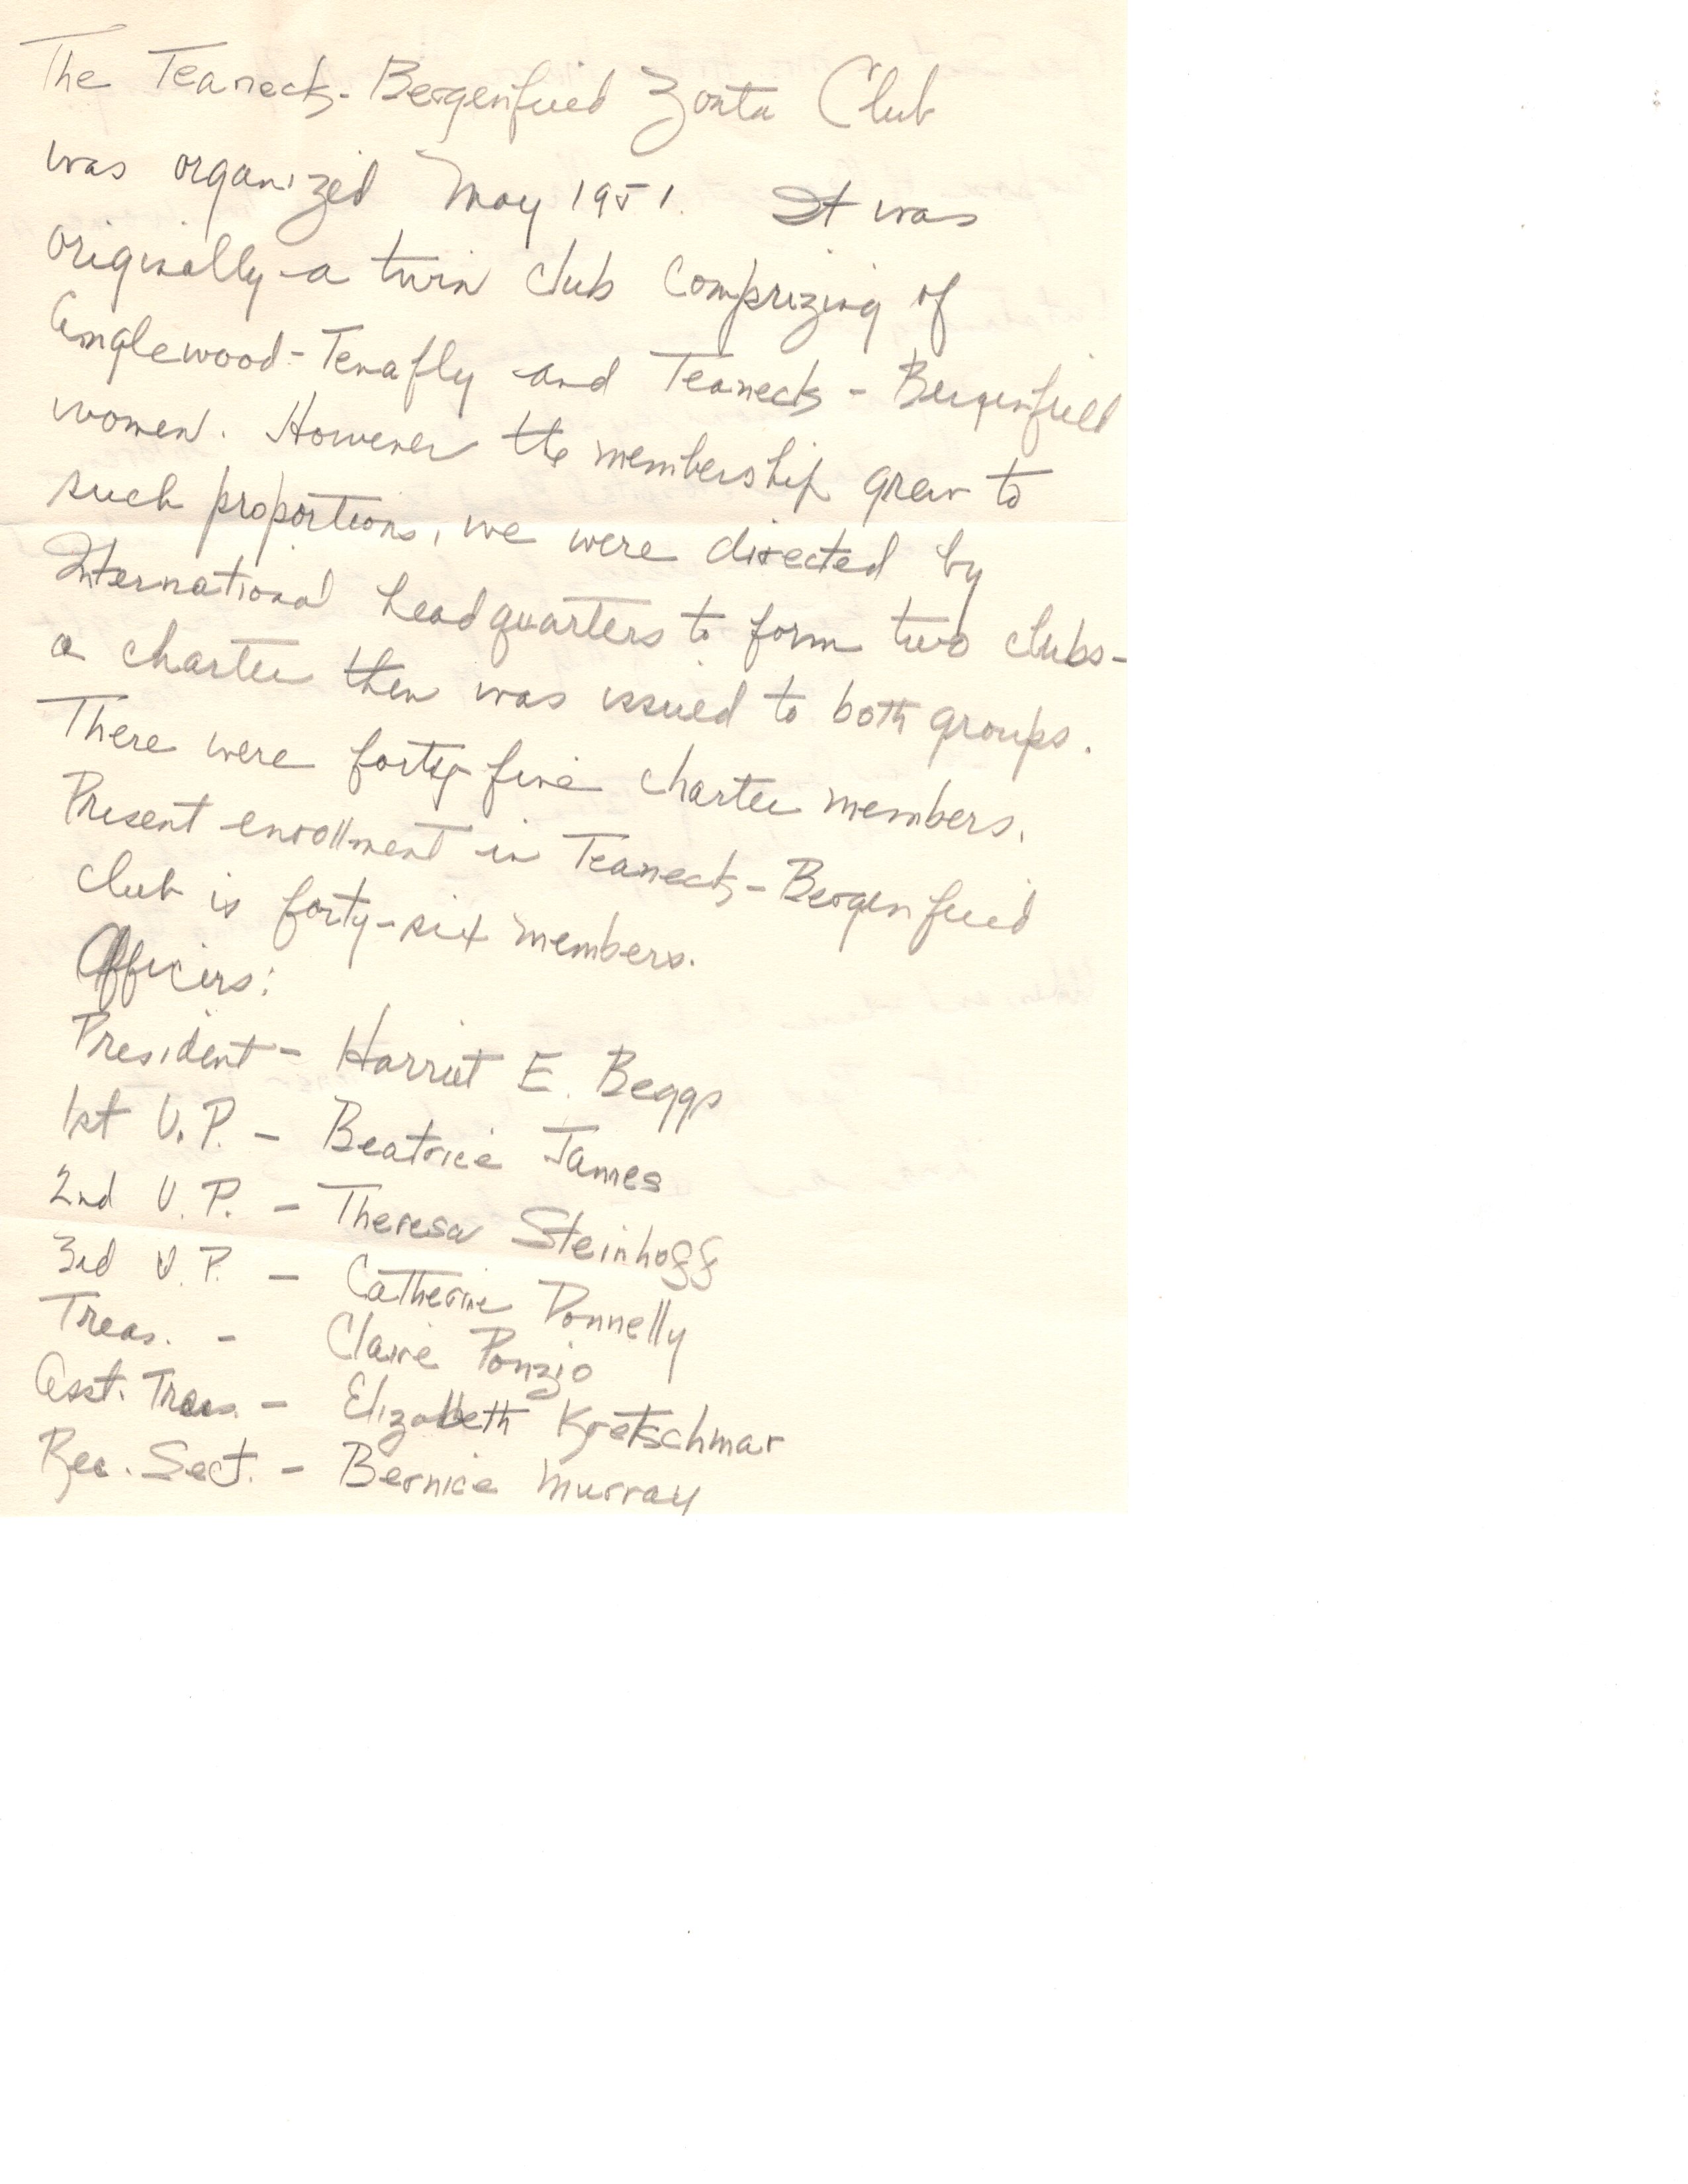 The Teaneck-Bergenfield Zonta Club
was organized May 1951. It was
originally a twin club comprizing of
Englewood-Tenafly and Teaneck-Bergenfield
women. However the membership grew to
such proportions, we were directed by
International headquarters to form two clubs-
a charter then was issued to both groups.
There were forty-five charter members.
Present enrollment in Teaneck-Bergenfield
club is forty-six members.
Officers:
President - Harriet E. Beggs
1st V.P. - Beatrice James
2nd V.P. - Theresa Steinhoff
3rd V.P. - Catherine Donnelly
Treas. - Claire Ponzio
Asst. Treas. - Elizabeth Kretschmar
Rec. Sect. - Bernice Murray